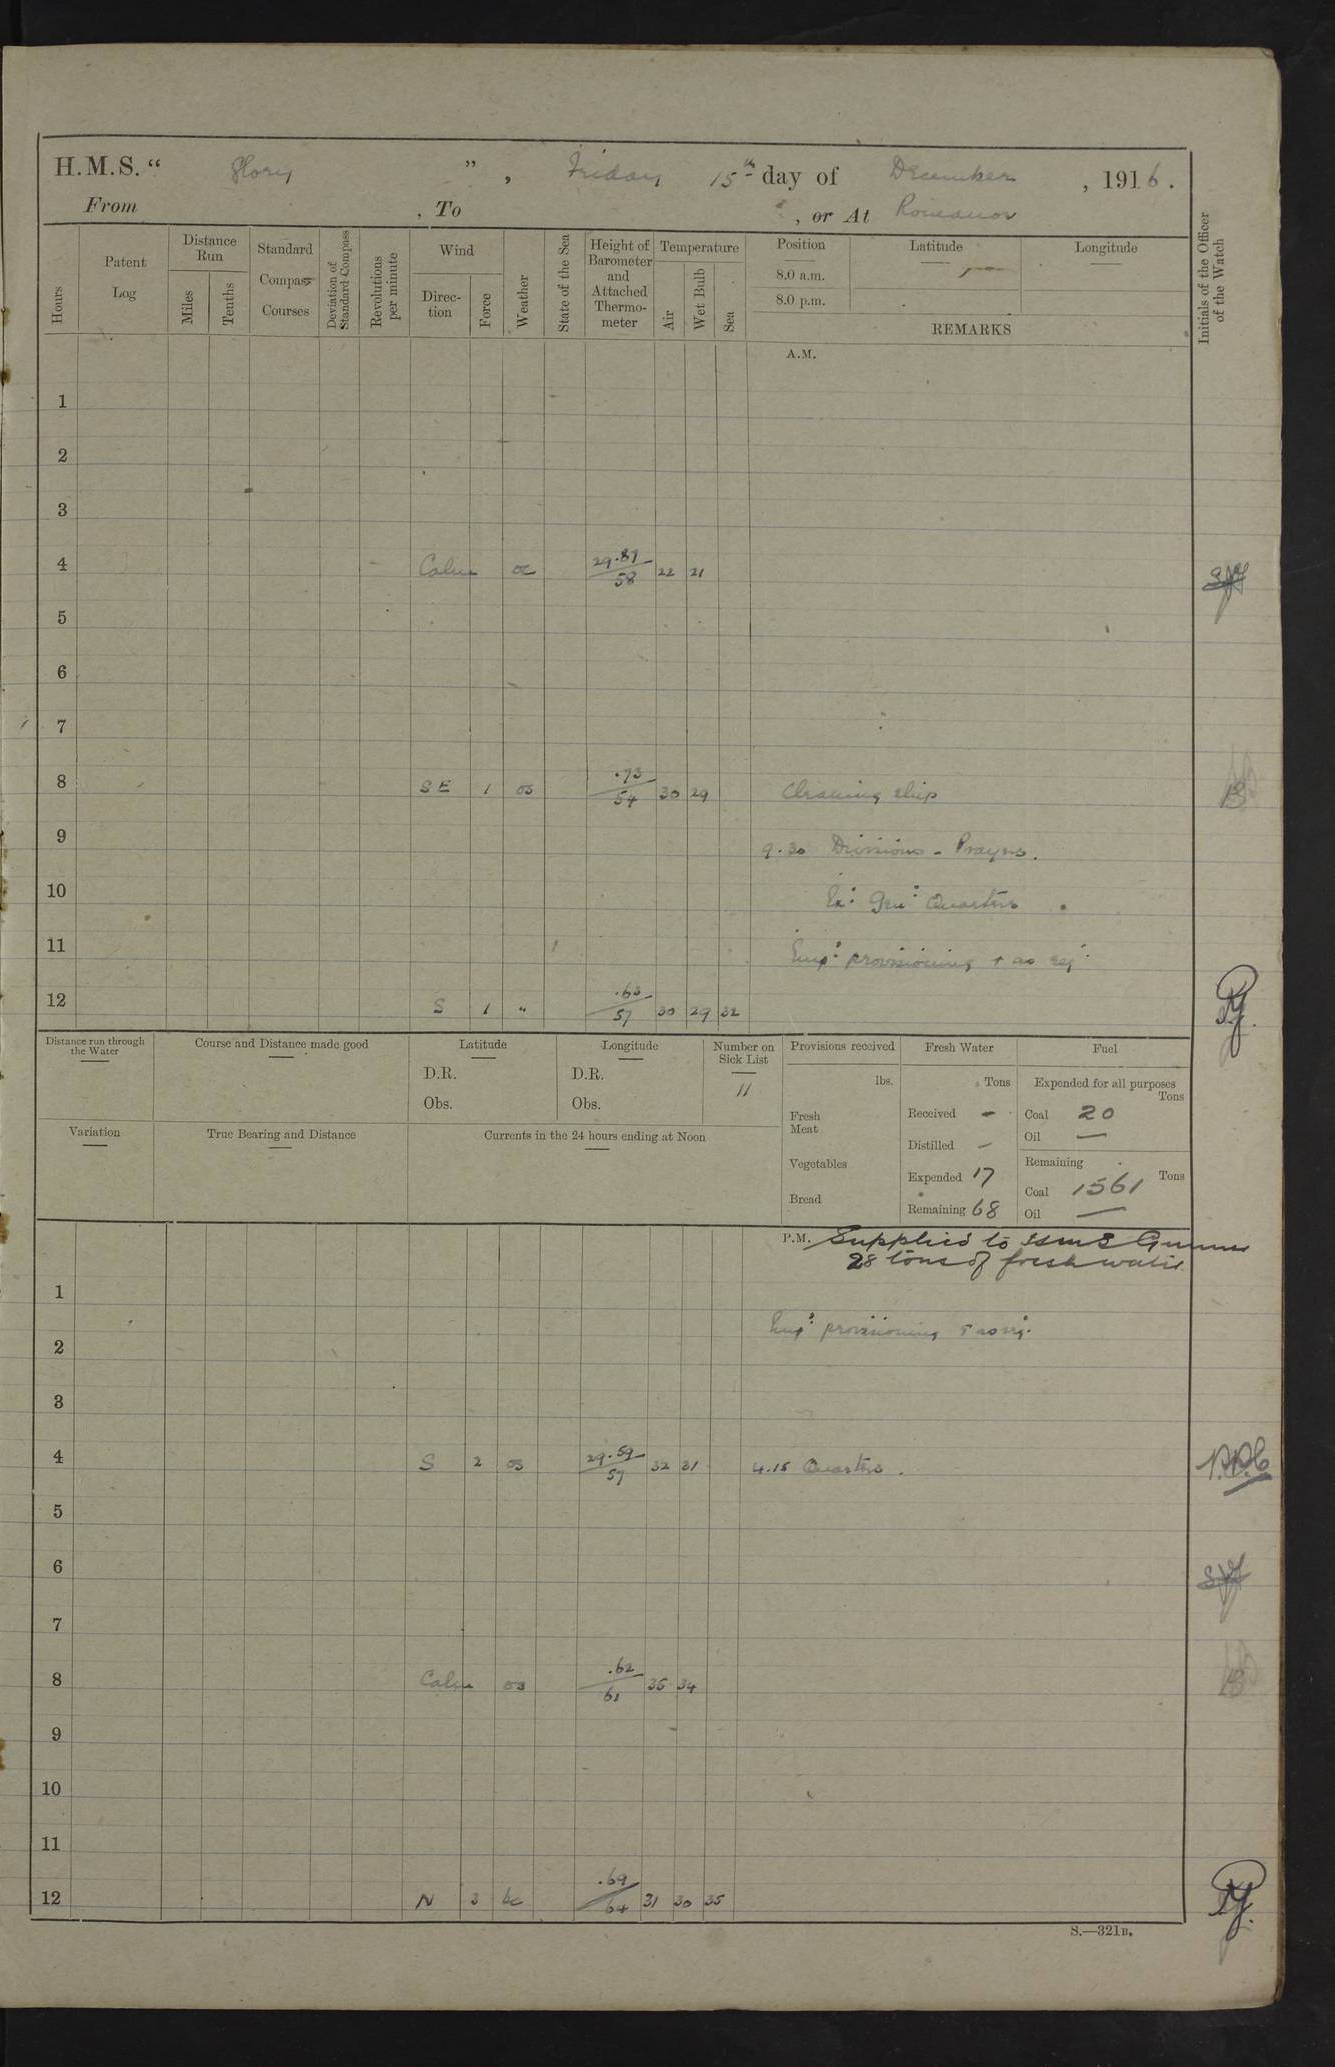 H.M.S. " Glory ", Friday 15th day of December, 1916.
From , To , or At Romanov
Hours
Patent Log
Distance Run
Miles
Tenths
Standard Compass Courses
Deviation of Standard Compass
Revolutions per minute
Wind
Direction
Force
Weather
State of the Sea
Height of Barometer and Attached Thermometer
Temperature
Air
Wet Bulb
Sea
Position
8.0 a.m.
8.0 p.m.
Latitude
Longitude
REMARKS
Initials of the Officer of the Watch
A.M.
1
2
3
4 Calm oc 29.81/58 22 21
5
6
7
8 SE 1 os .73/54 30 29 Cleaning ship
9 9.30 Divisions - Prayers.
10 Ex: Gen: Quarters
11 Emp: provisioning + as req:
12 S 1 " .63/57 30 29 32
Distance run through the Water
Course and Distance made good
Latitude
D.R.
Obs.
Longitude
D.R.
Obs.
Number on Sick List
11
Variation
True Bearing and Distance
Currents in the 24 hours ending at Noon
Provisions received
lbs.
Fresh Meat
Vegetables
Bread
Fresh Water
Tons
Received -
Distilled -
Expended 17
Remaining 68
Fuel
Expended for all purposes
Tons
Coal 20
Oil —
Remaining
Tons
Coal 1561
Oil —
P.M. Supplied to HMS Gunner
28 tons of fresh water
1
Emp: provisioning + as req.
2
3
4 S 2 os 29.59/57 32 31 4.15 Quarters.
5
6
7
8 Calm os .62/61 35 34
9
10
11
12 N 3 bc .69/64 31 30 35
S.—321B.